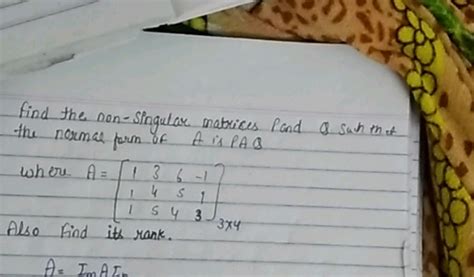 find the non-singular matrices P and Q such that
the normal form of A is PAQ
where A = [ 1 3 6 -1
1 4 5 1
1 5 4 3 ] 3x4
Also find its rank.
A = Im A In